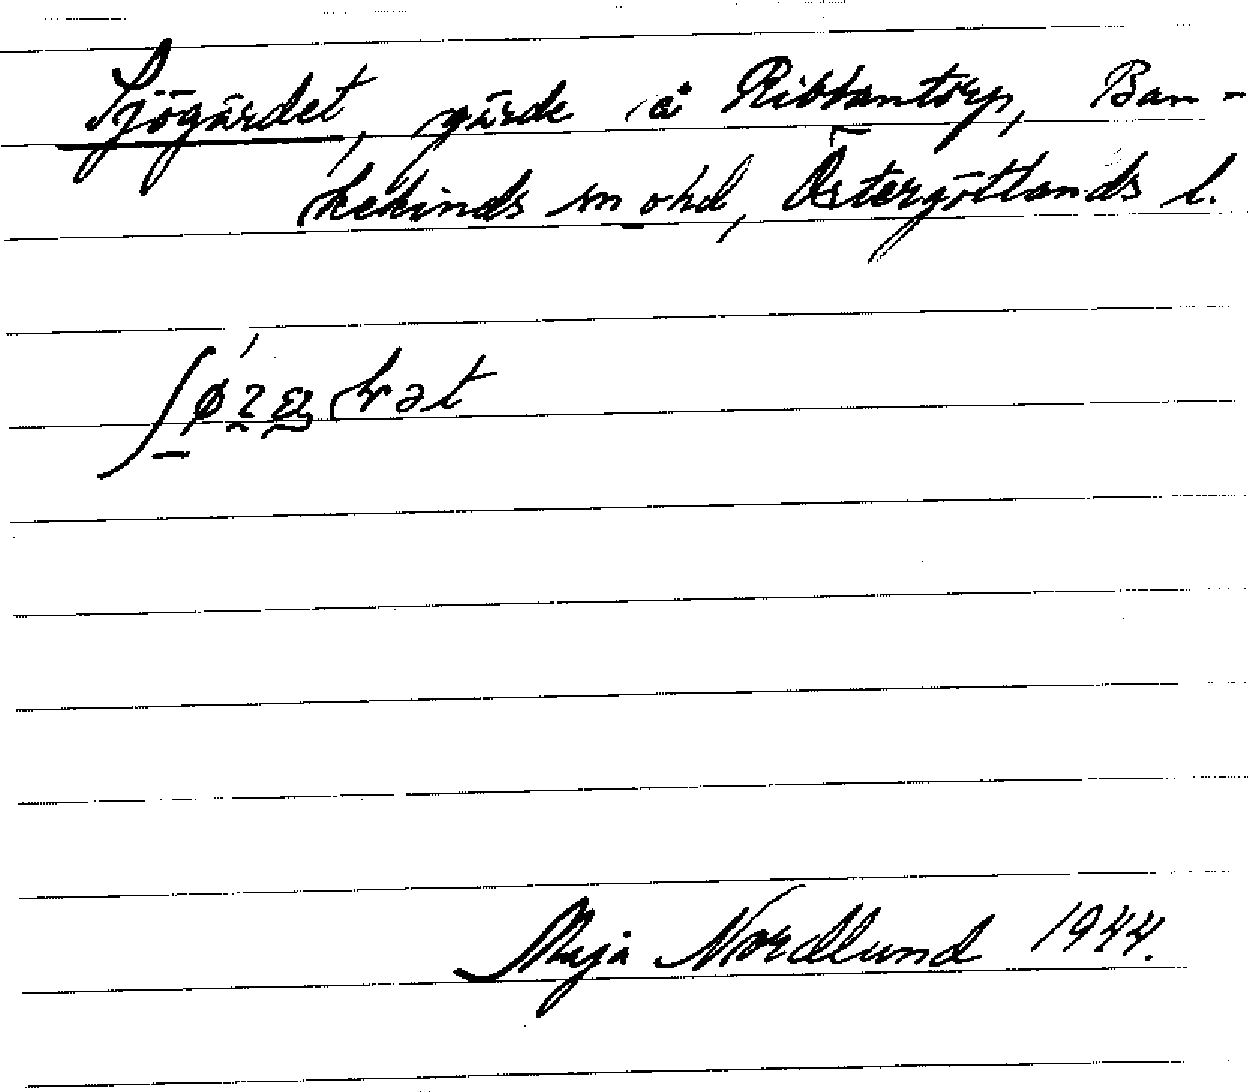 Sjögärdet, gärde å Ribbantorp, Ban-
kekinds sn o hd, Östergötlands l.
Maja Nordlund 1944.